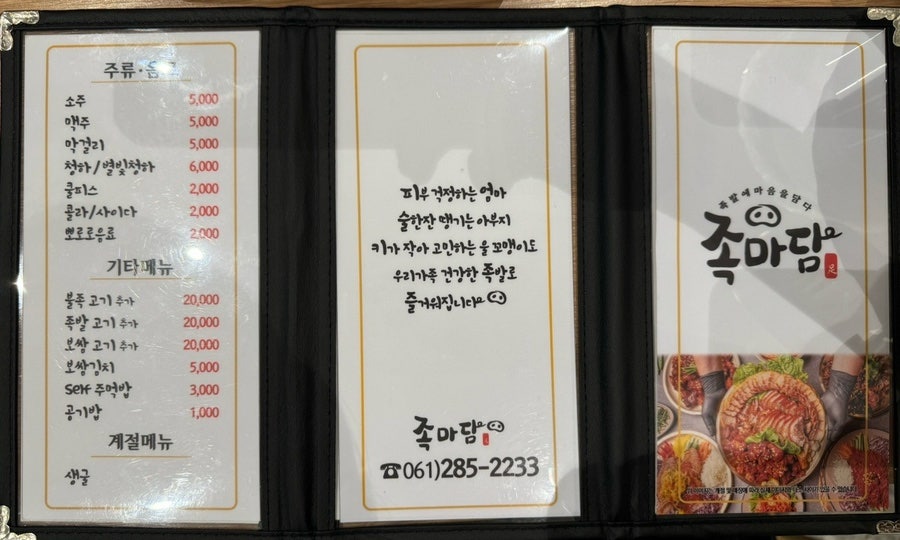 주류·음료
소주 5,000
맥주 5,000
막걸리 5,000
청하/별빛청하 6,000
쿨피스 2,000
콜라/사이다 2,000
뽀로로음료 2,000
기타메뉴
불족 고기 추가 20,000
족발 고기 추가 20,000
보쌈 고기 추가 20,000
보쌈김치 5,000
self 주먹밥 3,000
공기밥 1,000
계절메뉴
생굴
피부 걱정하는 엄마
술한잔 땡기는 아부지
키가 작아 고민하는 울 꼬맹이도
우리가족 건강한 족발로
즐거워집니다
족마담
☎061)285-2233
족발에마음을담다
족마담